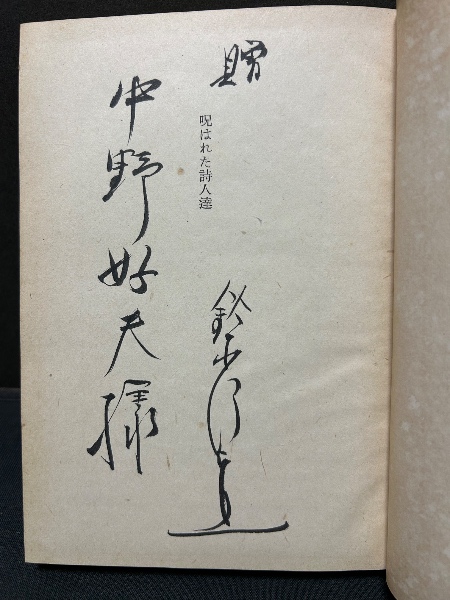 贈
呪はれた詩人達
鈴木
中野好夫様